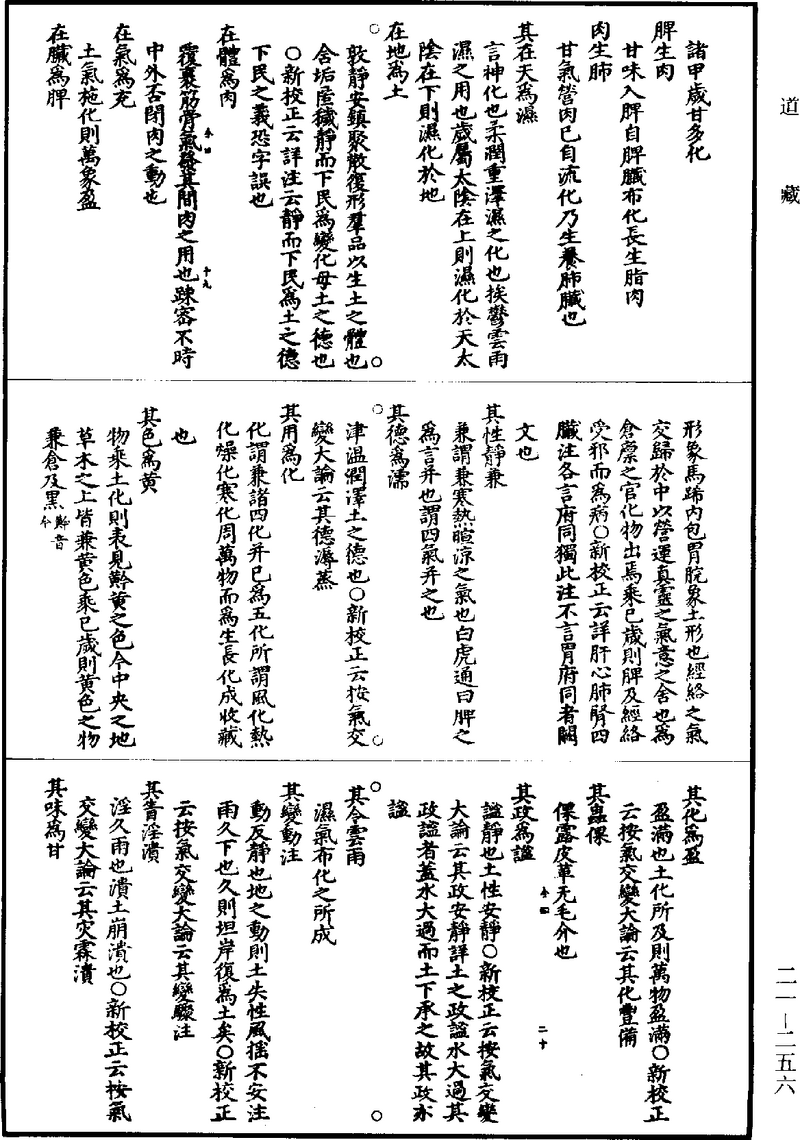 道藏
諸甲歲甘多化
脾生肉
甘味入脾自脾臟布化長生脂肉
肉生肺
甘氣營肉已自流化乃生養肺臟也
其在天爲濕
言神化也柔潤重澤濕之化也挨鬱雲雨
濕之用也歲屬太陰在上則濕化於天太
陰在下則濕化於地
在地爲土
敦靜安鎮聚散復形羣品以生土之體也
含垢屋穢靜而下民爲變化母土之德也
○新校正云詳注云靜而下民爲土之德
下民之義恐字誤也
在體爲肉
覆裹筋骨氣發其間肉之用也疎密不時
中外否閉肉之動也
在氣爲充
土氣施化則萬象盈
在臟爲脾
形象馬蹄內包胃脘象土形也經絡之氣
交歸於中以營運真靈之氣意之舍也爲
倉廩之官化物出焉乘已歲則脾及經絡
受邪而爲病○新校正云詳肝心肺腎四
臟注各言府同獨此注不言胃府同者闕
文也
其性靜兼
兼謂兼寒熱暄涼之氣也白虎通曰脾之
爲言并也謂四氣并之也
其德爲濡
津温潤澤土之德也○新校正云按氣交
變大論云其德溽蒸
其用爲化
化謂兼諸四化并已爲五化所謂風化熱
化燥化寒化周萬物而爲生長化成收藏
也
其色爲黄
物乘土化則表見黅黄之色今中央之地
草木之上皆兼黄色乘已歲則黄色之物
兼倉及黑黅音今
其化爲盈
盈滿也土化所及則萬物盈滿○新校正
云按氣交變大論云其化豐備
其蟲倮
倮露皮革无毛介也
其政爲謐
謐靜也土性安靜○新校正云按氣交變
大論云其政安靜詳土之政謐水大過其
政謐者蓋水大過而土下承之故其政亦
謐
其令雲雨
濕氣布化之所成
其變動注
動反靜也地之動則土失性風揺不安注
雨久下也久則坦岸復爲土矣○新校正
云按氣交變大論云其變驟注
其眚淫潰
淫久雨也潰土崩潰也○新校正云按氣
交變大論云其灾霖潰
其味爲甘
二一—二五六